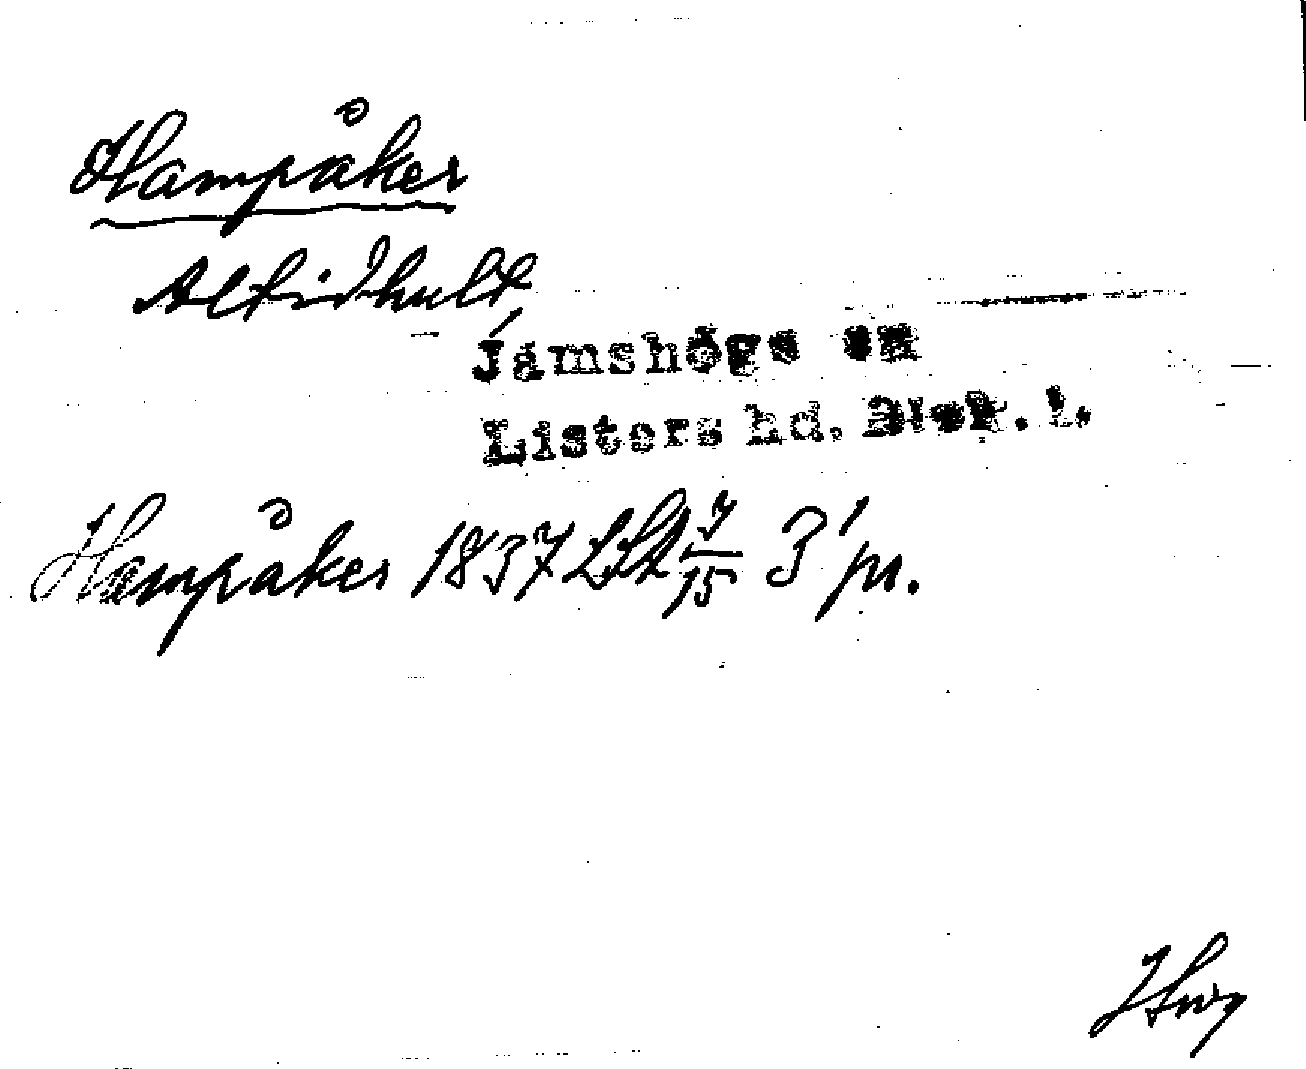 Hampåker
Altidhult,
Jämshögs sn
Listers hd. Blek. l.
Hampåker 1837 LSA 7/15 3 'pr.